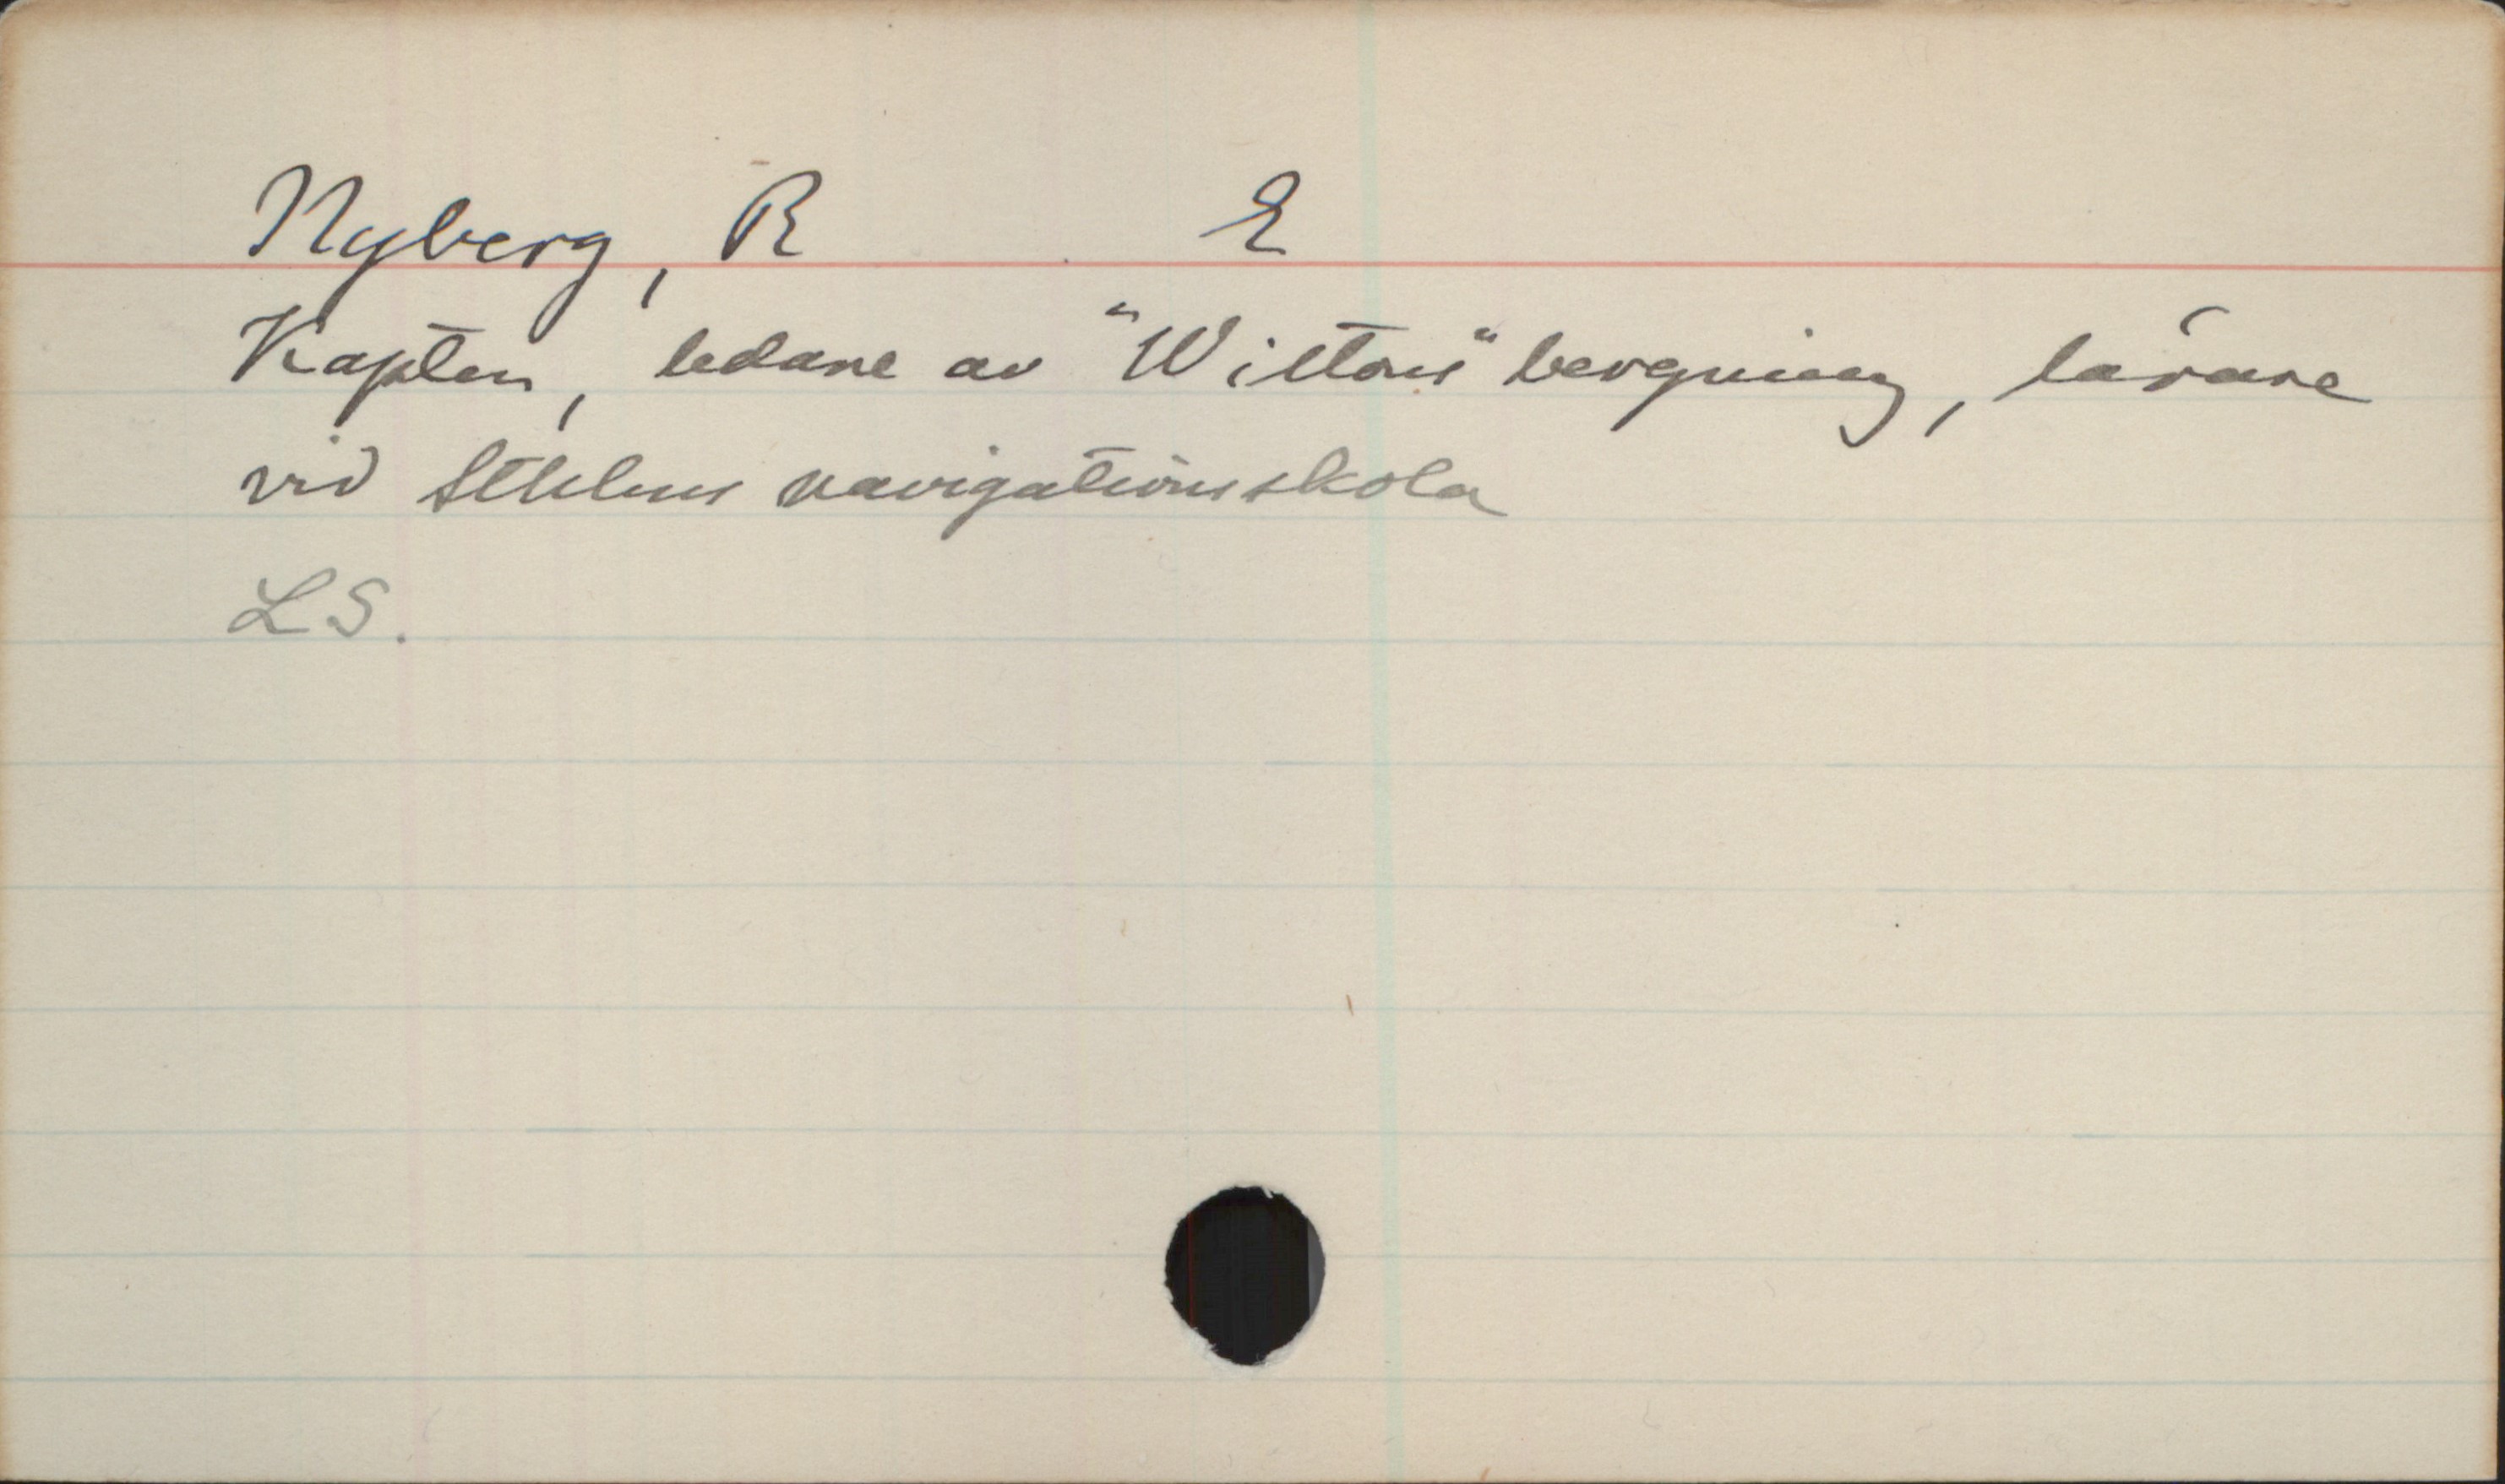 Nyberg, R E
Kapten, ledare av "Wiltons" bergning, lärare
vid Sthlms navigationsskola
LS.